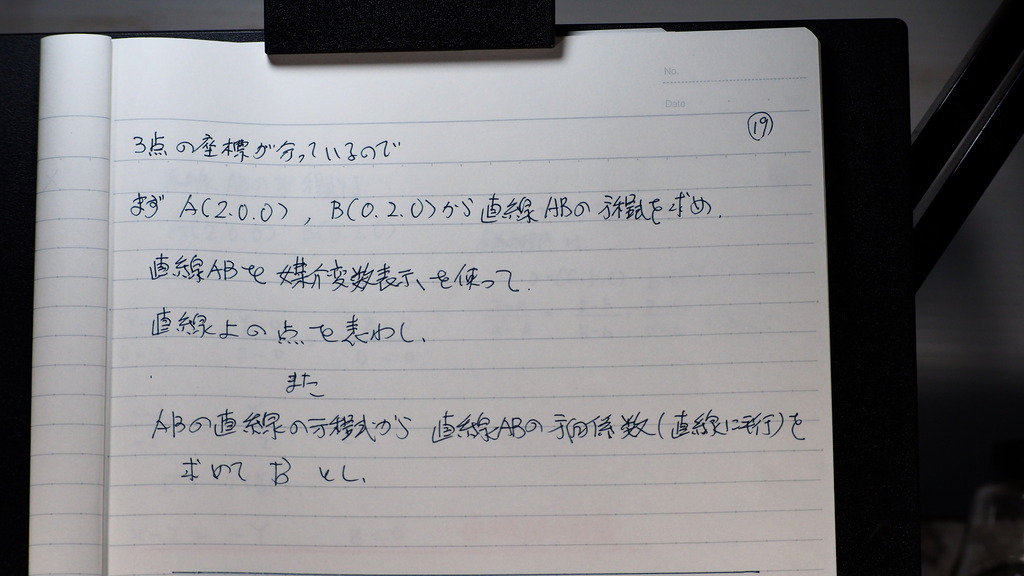 No.
Date
19
3点の座標が分っているので
まず A(2.0.0), B(0.2.0)から直線ABの方程式を求め.
直線ABを媒介変数表示、を使って.
直線上の点を表わし、
また
ABの直線の方程式から 直線ABの方向係数(直線に平行)を
求めて B とし、